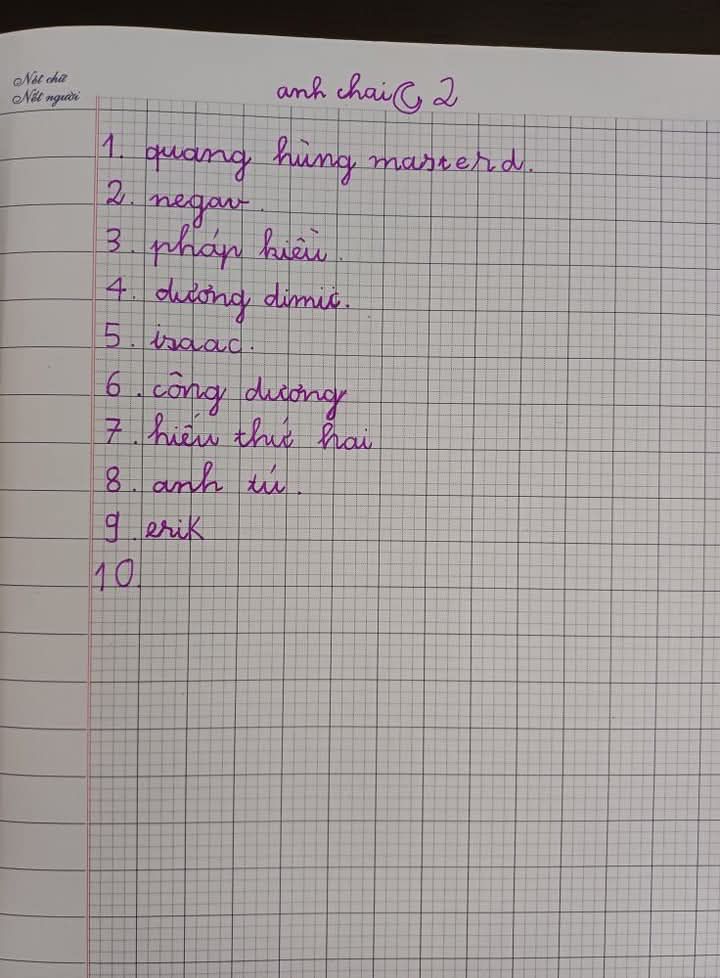 Nét chữ
Nết người
anh chai C, 2
1. quang hùng masterd.
2. negav.
3. pháp kiều.
4. dương dimic.
5. isaac.
6. công dương
7. hiếu thứ hai
8. anh tú.
9. erik
10.